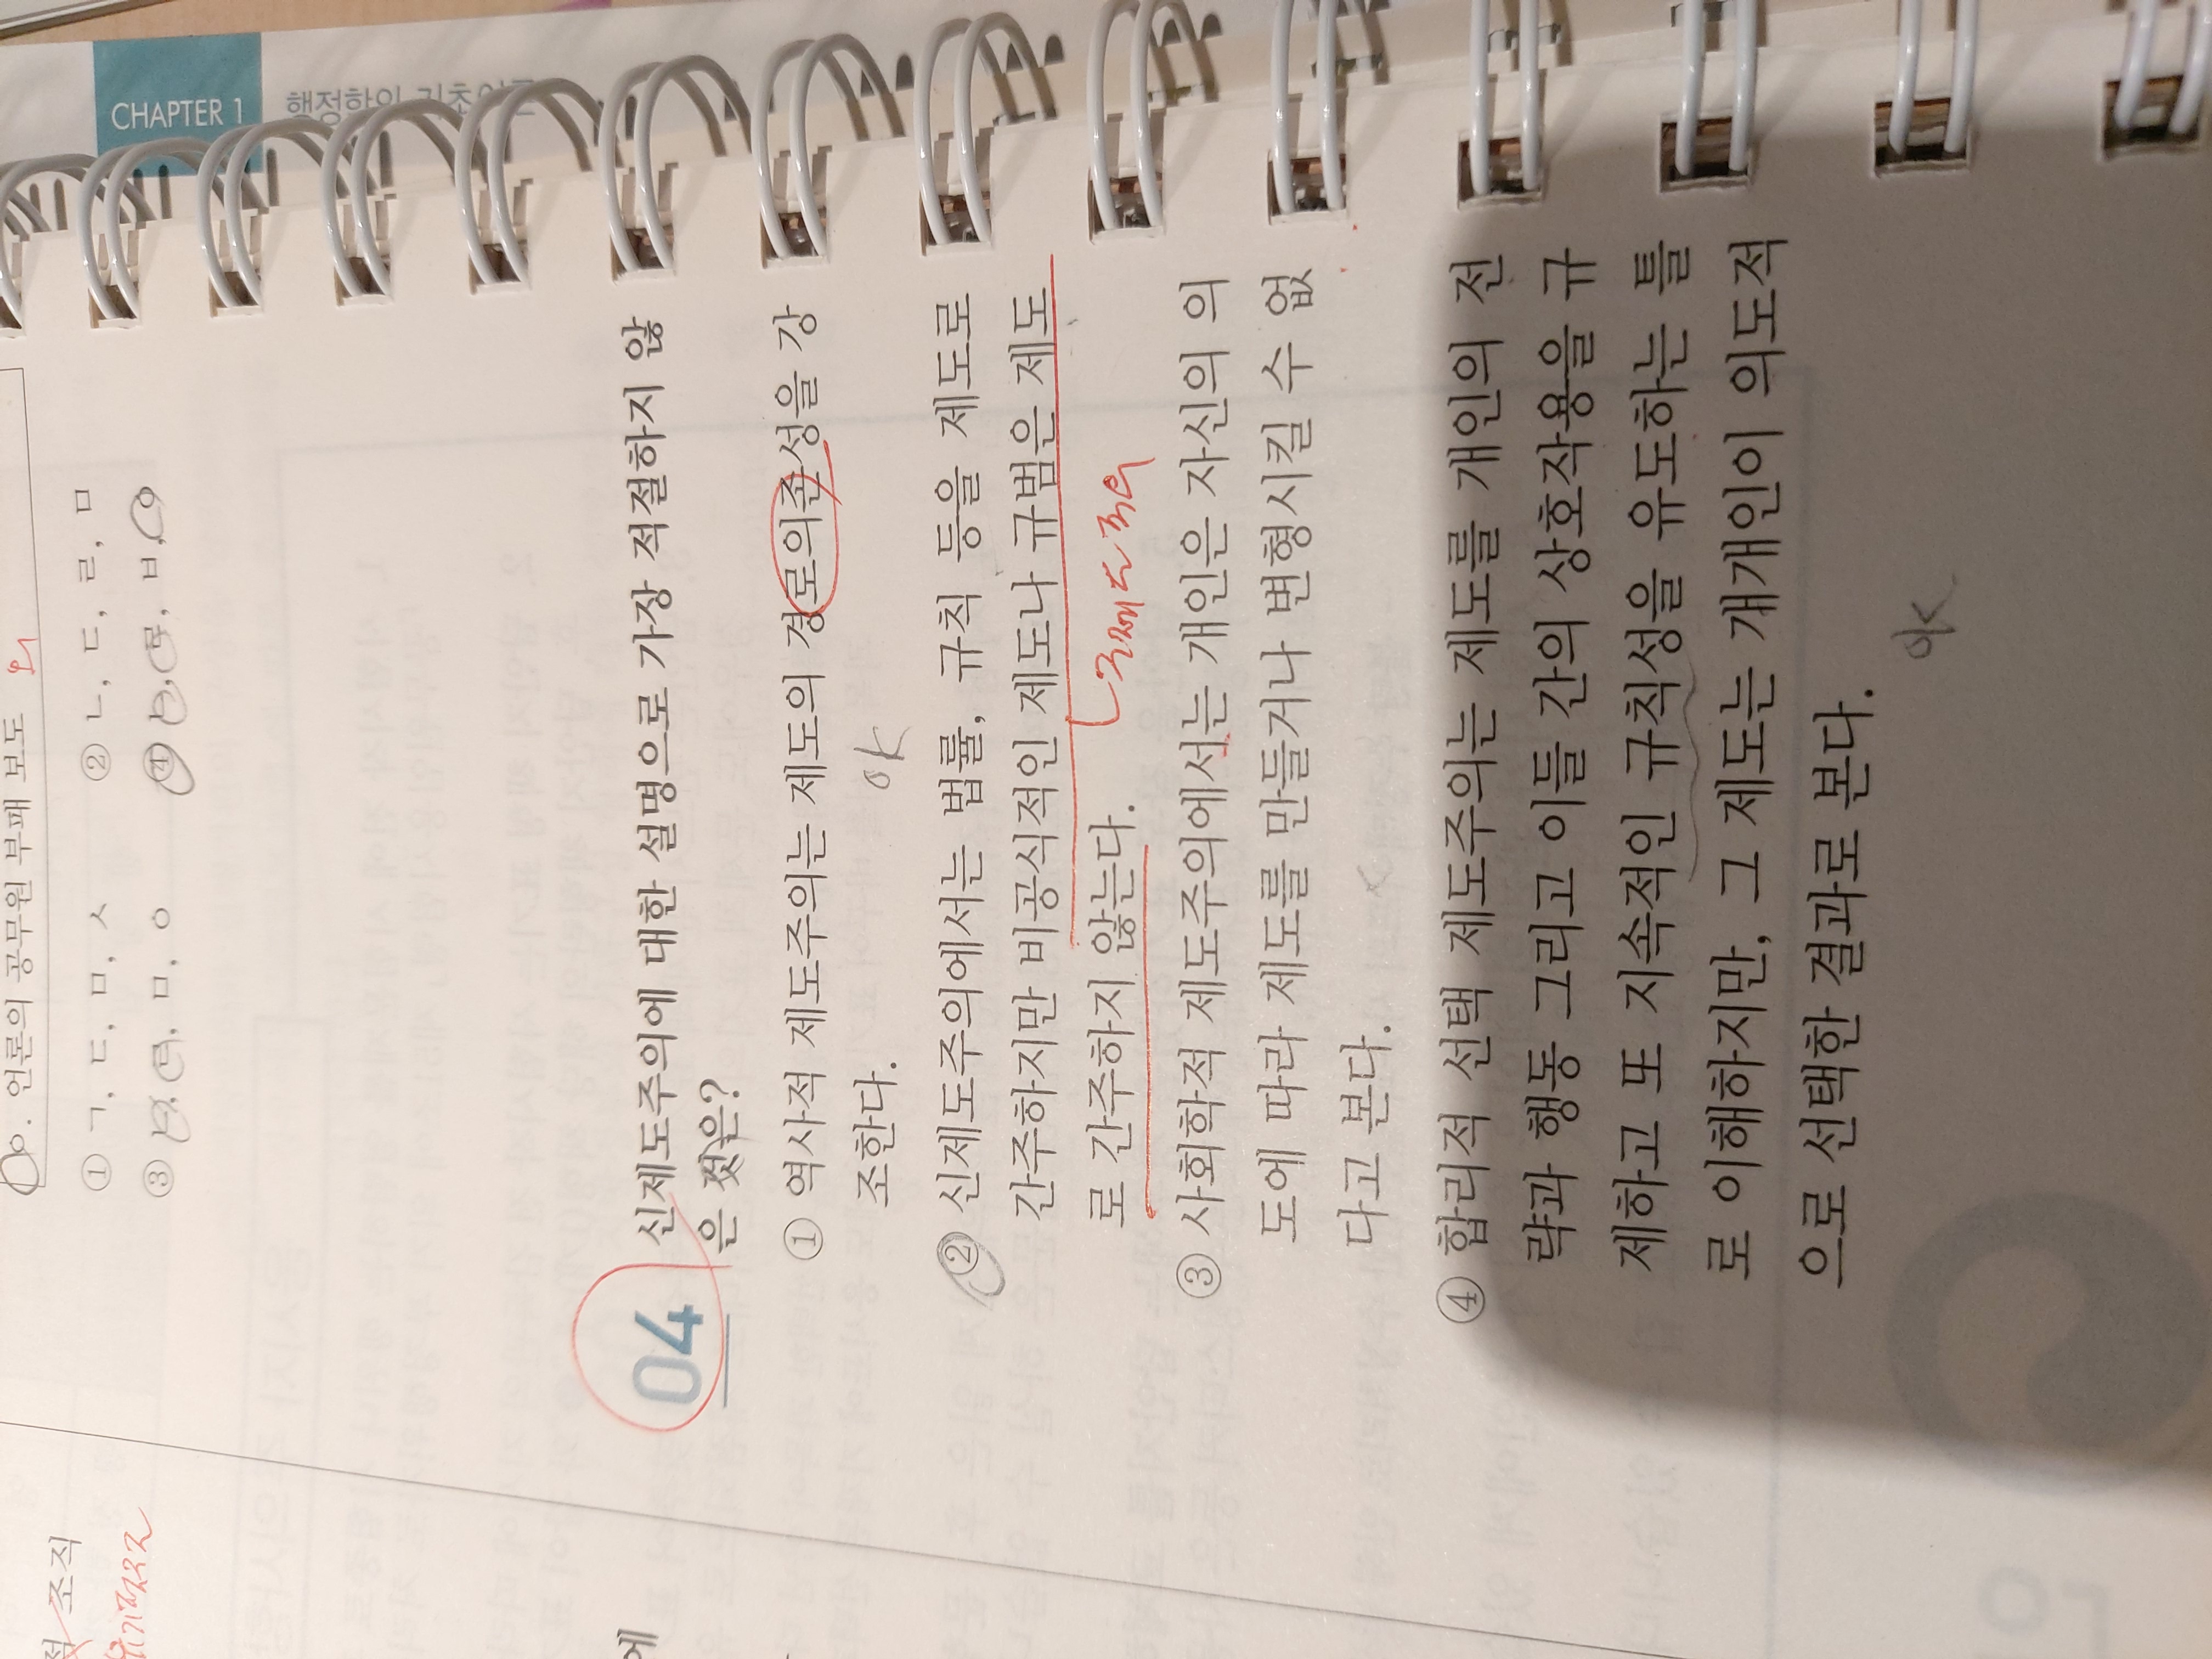 CHAPTER 1
행정학의 기초이론
ㅇ. 언론의 공무원 부패 보도
① ㄱ, ㄷ, ㅁ, ㅅ ② ㄴ, ㄷ, ㄹ, ㅁ
③ ㅁ, ㅇ ④ ㅂ
04 신제도주의에 대한 설명으로 가장 적절하지 않
은 것은?
① 역사적 제도주의는 제도의 경로의존성을 강
조한다.
ok
② 신제도주의에서는 법률, 규칙 등을 제도로
간주하지만 비공식적인 제도나 규범은 제도
로 간주하지 않는다.
③ 사회학적 제도주의에서는 개인은 자신의 의
도에 따라 제도를 만들거나 변형시킬 수 없
다고 본다.
④ 합리적 선택 제도주의는 제도를 개인의 전
략과 행동 그리고 이들 간의 상호작용을 규
제하고 또 지속적인 규칙성을 유도하는 틀
로 이해하지만, 그 제도는 개개인이 의도적
으로 선택한 결과로 본다.
ok
적 조직
에